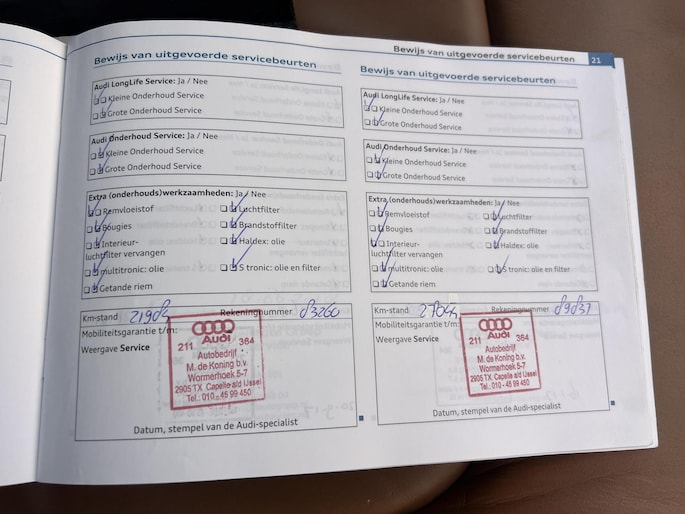 Bewijs van uitgevoerde servicebeurten 21
Bewijs van uitgevoerde servicebeurten
Audi LongLife Service: Ja / Nee
Kleine Onderhoud Service
Grote Onderhoud Service
Audi Onderhoud Service: Ja / Nee
Kleine Onderhoud Service
Grote Onderhoud Service
Extra (onderhouds)werkzaamheden: Ja / Nee
Remvloeistof Luchtfilter
Bougies Brandstoffilter
Interieur- Haldex: olie
luchtfilter vervangen
multitronic: olie S tronic: olie en filter
Getande riem
Km-stand Rekeningnummer 83260
Mobiliteitsgarantie t/m:
Weergave Service
Audi
211 364
Autobedrijf
M. de Koning b.v.
Wormerhoek 5-7
2905 TX Capelle a/d IJssel
Tel.: 010 - 45 99 450
Datum, stempel van de Audi-specialist
Bewijs van uitgevoerde servicebeurten
Audi LongLife Service: Ja / Nee
Kleine Onderhoud Service
Grote Onderhoud Service
Audi Onderhoud Service: Ja / Nee
Kleine Onderhoud Service
Grote Onderhoud Service
Extra (onderhouds)werkzaamheden: Ja / Nee
Remvloeistof Luchtfilter
Bougies Brandstoffilter
Interieur- Haldex: olie
luchtfilter vervangen
multitronic: olie S tronic: olie en filter
Getande riem
Km-stand 27044 Rekeningnummer
Mobiliteitsgarantie t/m:
Weergave Service
Audi
211 364
Autobedrijf
M. de Koning b.v.
Wormerhoek 5-7
2905 TX Capelle a/d IJssel
Tel.: 010 - 45 99 450
Datum, stempel van de Audi-specialist